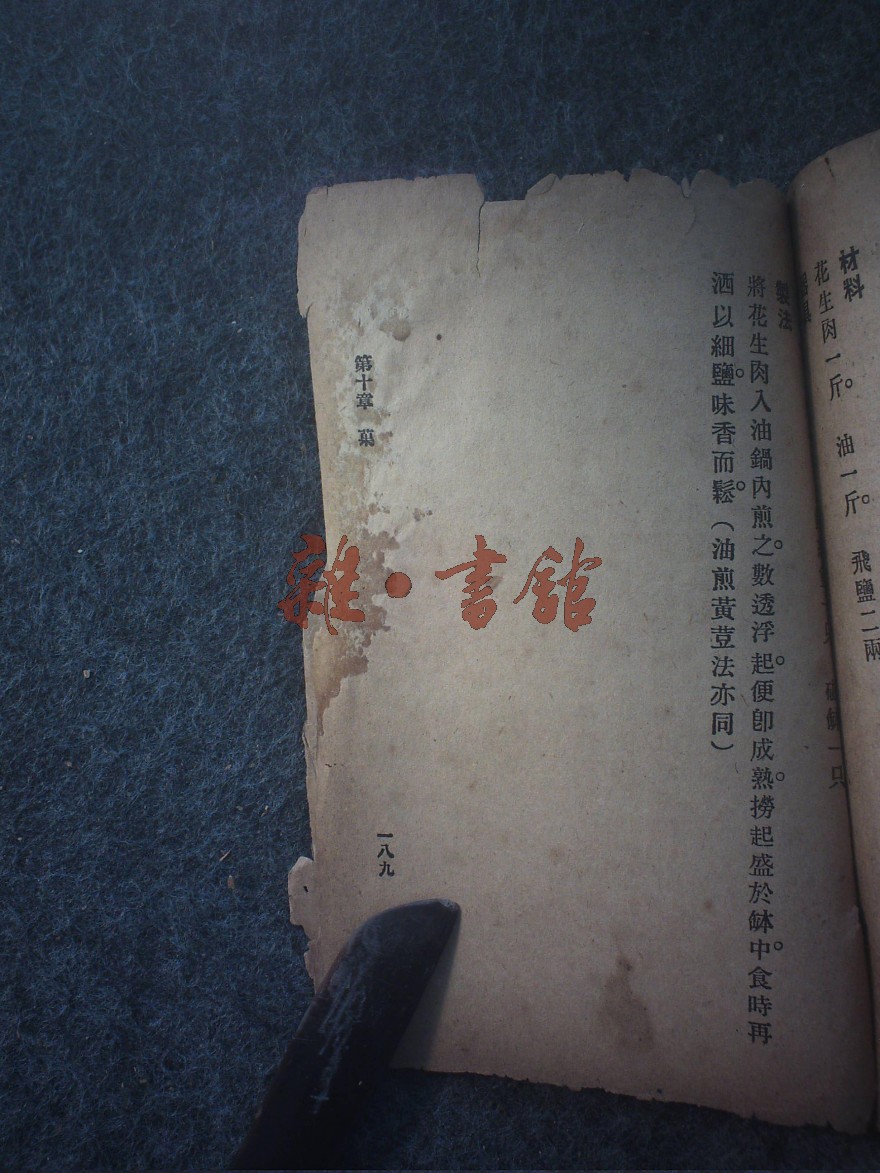 材料
花生肉一斤。　油一斤。　飛鹽二兩
器具
製法
將花生肉入油鍋內煎之。數透浮起。便卽成熟。撈起盛於缽中。食時再
洒以細鹽。味香而鬆。（油煎黃荳法亦同）
第十章　菓
一八九
雜·書館